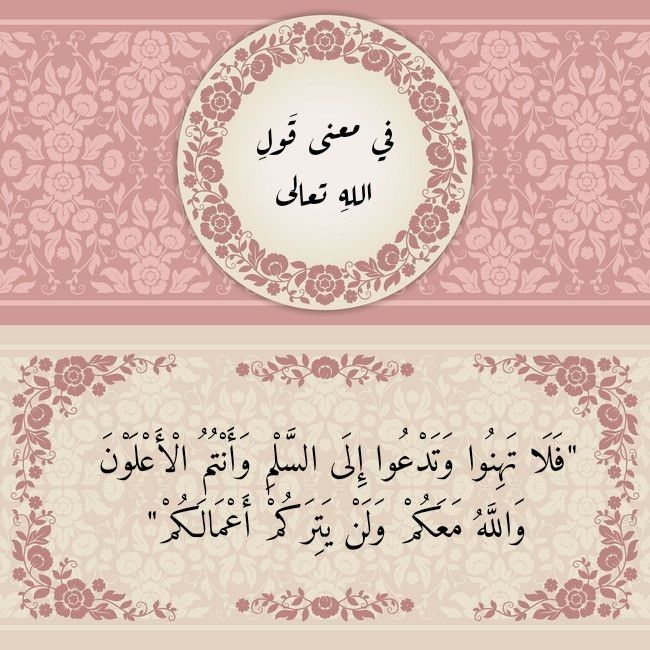 في معنى قَولِ
اللهِ تعالى
"فَلَا تَهِنُوا وَتَدْعُوا إِلَى السَّلْمِ وَأَنْتُمُ الْأَعْلَوْنَ
وَاللَّهُ مَعَكُمْ وَلَنْ يَتِرَكُمْ أَعْمَالَكُمْ"